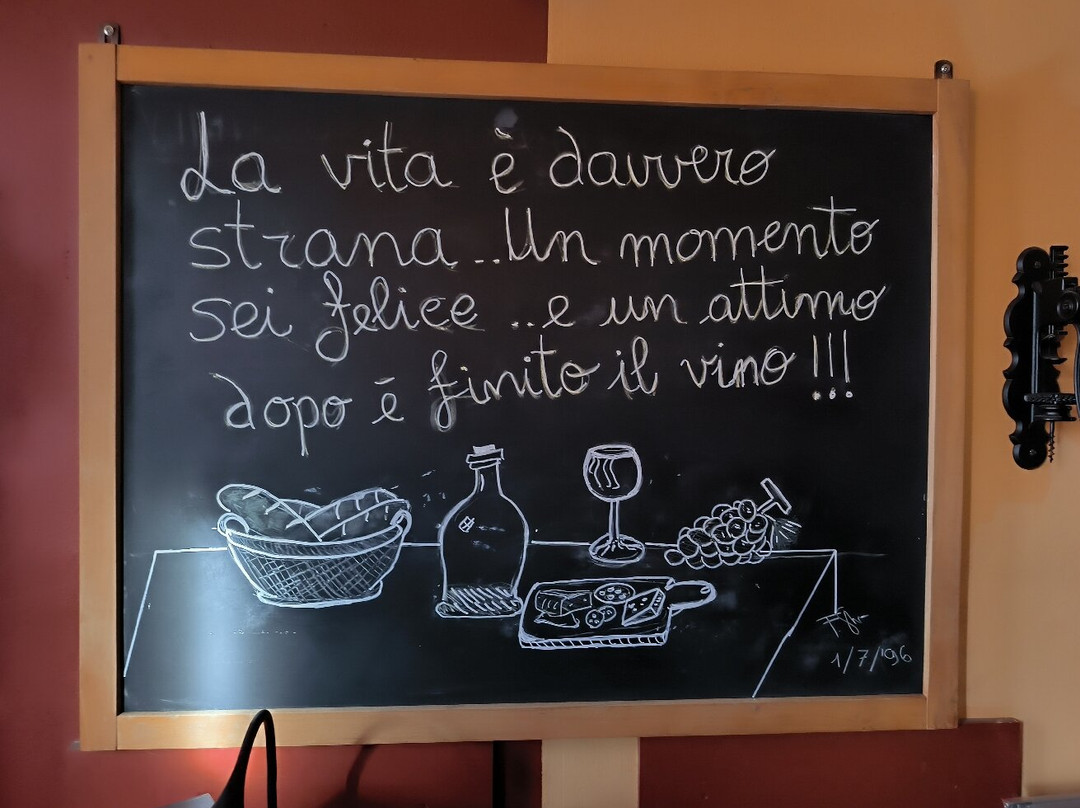 La vita è davvero
strana..Un momento
sei felice ..e un attimo
dopo é finito il vino !!!
1/7/'96